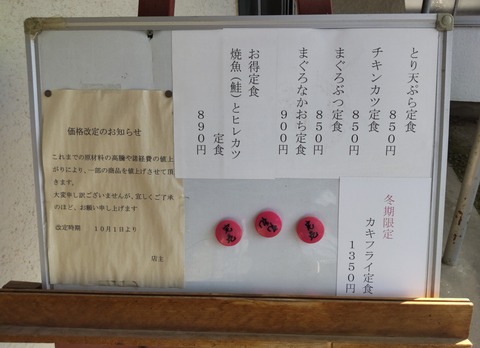 とり天ぷら定食
８５０円
チキンカツ定食
８５０円
まぐろぶつ定食
８５０円
まぐろなかおち定食
９００円
お得定食
焼魚（鮭）とヒレカツ
定食
８９０円
冬期限定
カキフライ定食
１３５０円
価格改定のお知らせ
これまでの原材料の高騰や諸経費の値上
がりにより、一部の商品を値上げさせて頂
きます。
大変申し訳ございませんが、宜しくご了承
のほど、お願い申し上げます
改定時期　１０月１日より
店主